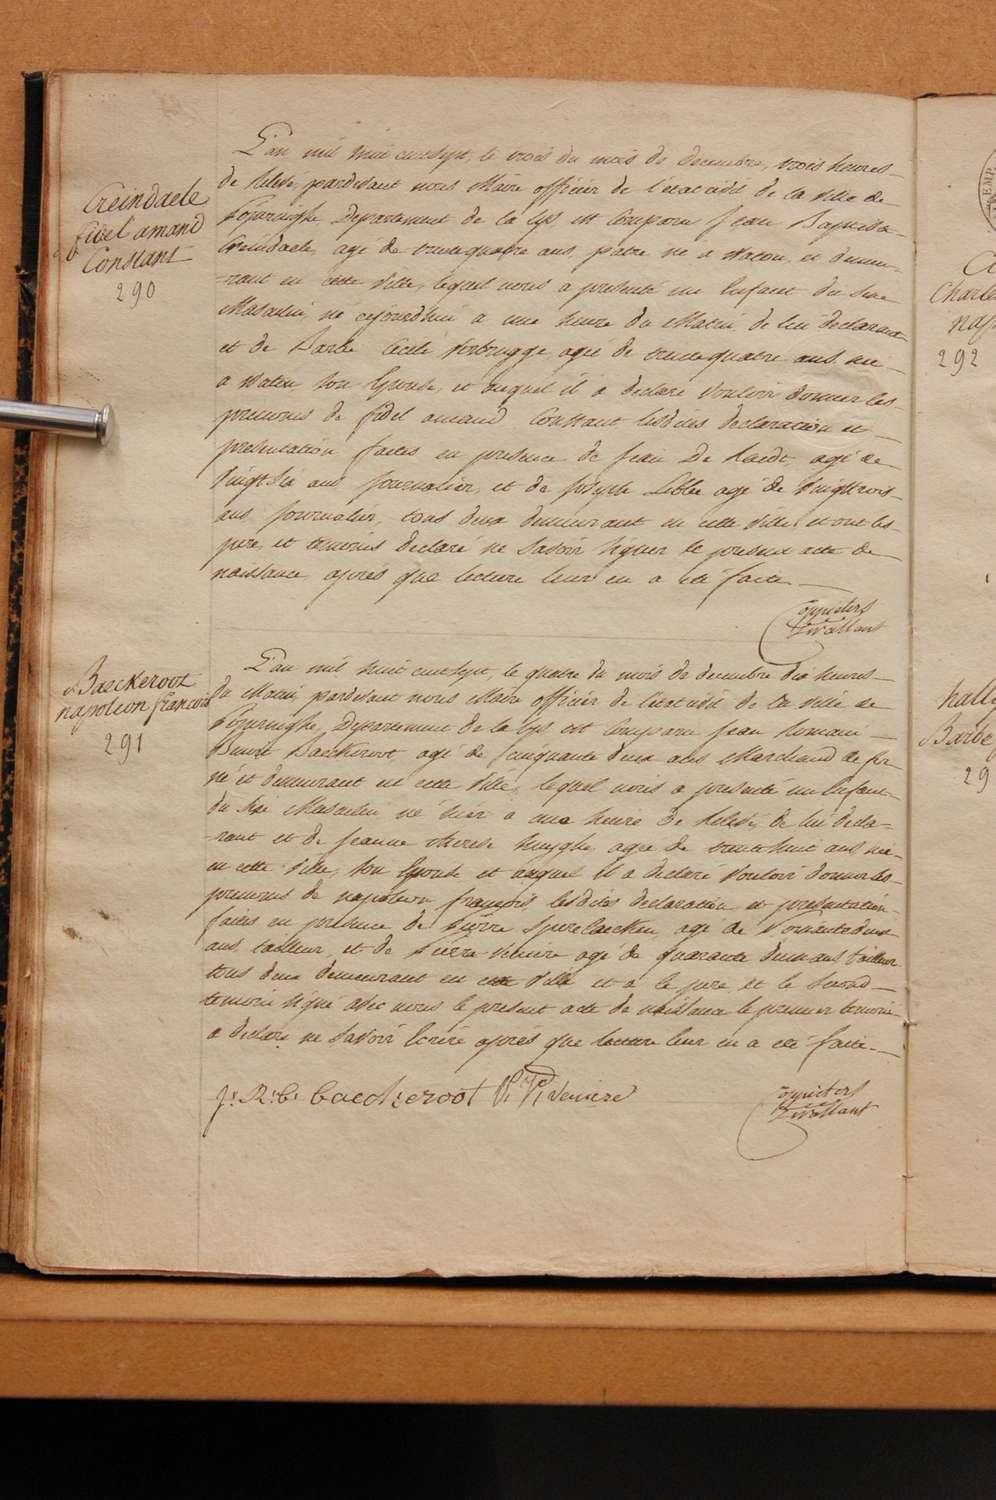 Creindaele
fidel amand
Constant
290
L'an mil huit cent sept, le trois du mois de decembre, trois heures
de Relevé, pardevant nous Maire officier de l'état civil de la ville de
Poperinghe Departement de la Lys, est comparu Jean Baptiste
Creindaele, agé de trente quatre ans, né a Watou, et demeu-
-rant en cette ville, lequel nous a presenté un Enfant du Sexe
Masculin, né cejourdhui a une heure du Matin, de lui declarant
et de Barbe Cecile Verbrugge, agée de trente quatre ans, née
a Watou son Epouse, et auquel il a declaré vouloir donner les
prenoms de fidel amand Constant lesdites declaration et
presentation faites en presence de Jean De Raedt, agé de
vingt six ans Journalier, et de Joseph Lebbe agé de vingt trois
ans, Journalier, tous deux demeurant en cette ville, et ont les
pere, et temoins declaré ne Savoir signer le present acte de
naissance, après que lecture leur en a eté faite
Baeckeroot
napoleon francois
291
L'an mil huit cent sept, le quatre du mois de decembre dix heures
du Matin, pardevant nous Maire officier de l'état civil de la ville de
Poperinghe, Departement de la Lys est comparu Jean Romain
Benoit Baeckeroot agé de Cinquante deux ans Marchand de fer
né et demeurant en cette ville, lequel nous a presenté un Enfant
du Sexe Masculin né hier a une heure de Relevé, de lui decla-
-rant et de Jeanne therese huyghe agée de trente huit ans née
en cette ville, son Epouse et auquel il a declaré vouloir donner les
prenoms de napoleon françois, lesdites declaration et presentation
faites en presence de Pierre agé de Soixante deux
ans tailleur, et de Pierre veniere agé de quarante deux ans tailleur
tous deux demeurant en cette ville et a le pere et le Second
temoin signé avec nous le present acte de naissance le premier temoin
a declaré ne savoir Ecrire après que lecture leur en a eté faite
J. R. B. baeckeroot P. veniere
Charle
292
Barbe
29